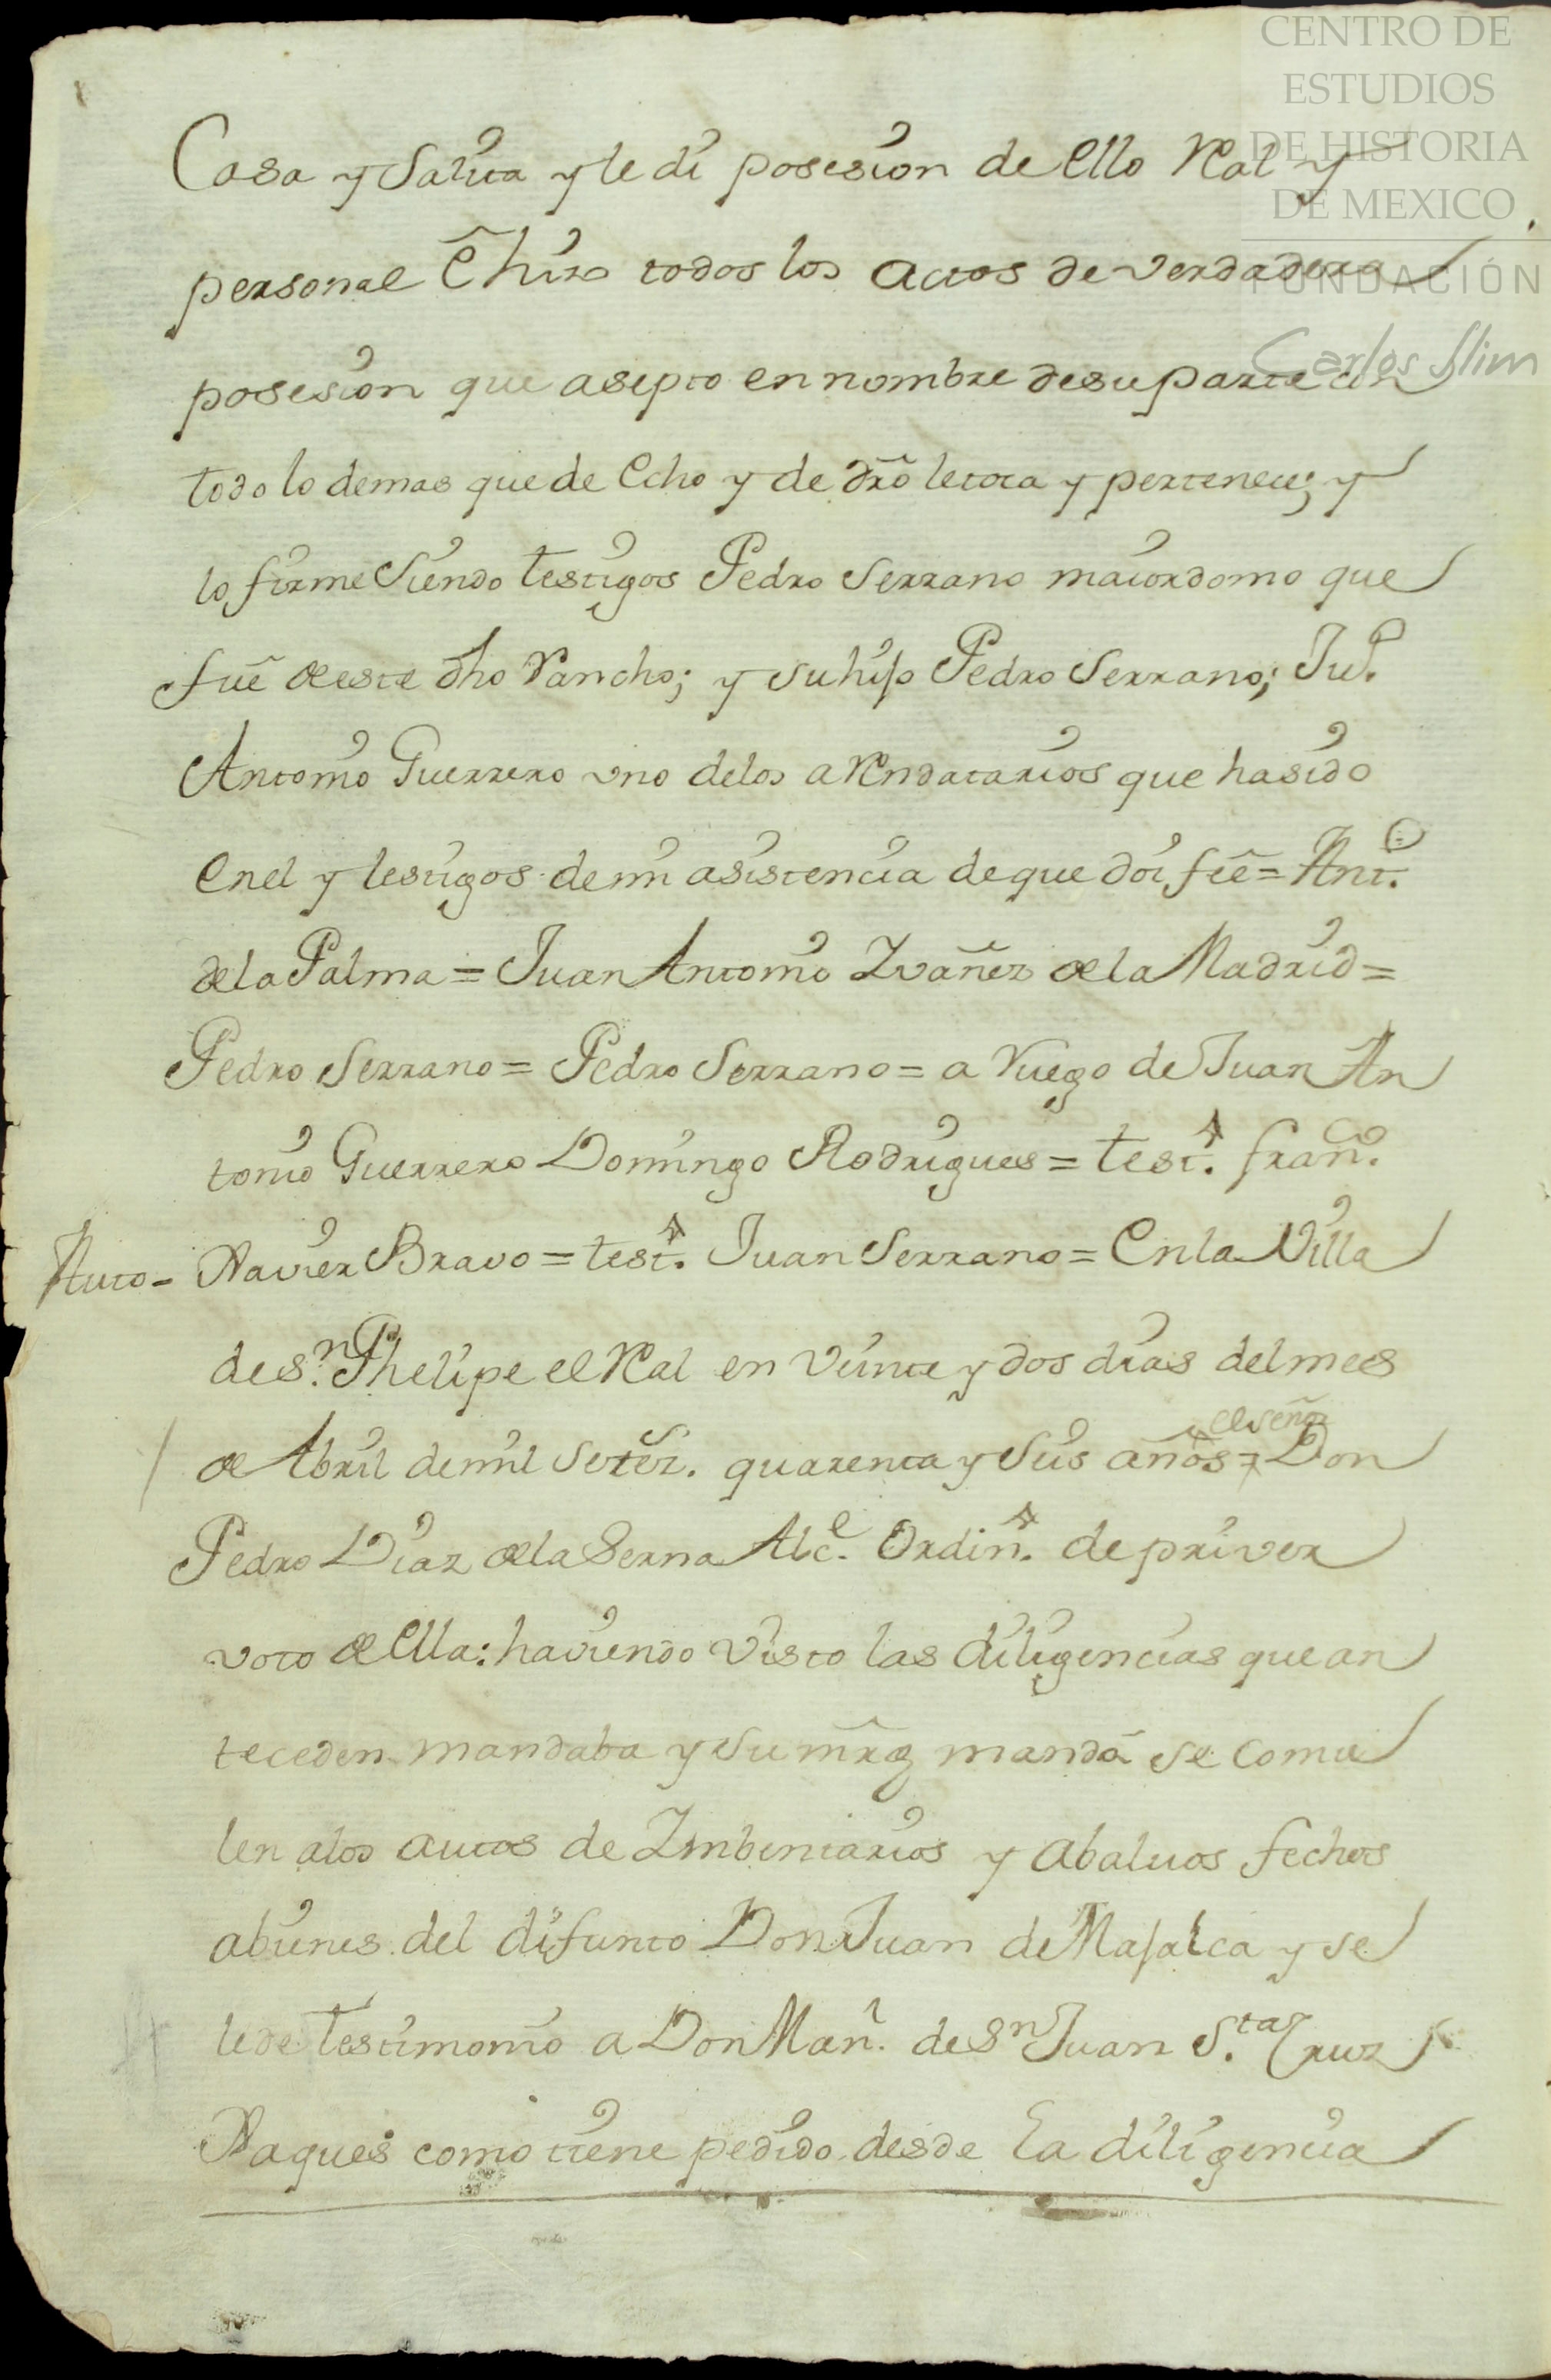 CENTRO DE
ESTUDIOS
DE HISTORIA
DE MEXICO
FUNDACIÓN
Carlos Slim
Casa y Salita y le di posesion de ello Ral y
personal e hizo todos los actos de verdadera
posesion que asepto en nombre de su parte con
todo lo demas que de echo y de dr̃o le toca y pertenece; y
lo firme siendo testigos Pedro Serrano maiordomo que
fue de este dho Rancho; y su hijo Pedro Serrano; Juº.
Antonio Guerrero uno de los aRendatarios que ha sido
en el y testigos de mi asistencia de que doi fee = Antº.
de la Palma = Juan Antonio Ivañez de la Madrid =
Pedro Serrano = Pedro Serrano = a Ruego de Juan An
tonio Guerrero Domingo Rodrigues = testº. franco.
Auto = Xavier Bravo = testº. Juan Serrano = En la Villa
de Sn. Phelipe el Ral en veinte y dos dias del mes
el señor
de Abril de mil setez. quarenta y seis años = Don
Pedro Diaz de la Serna Alce. Ordinº. de primer
voto de ella: haviendo visto las diligencias que an
teceden mandaba y su mr̃d mandó se comu
len a los autos de Imbentarios y abaluos fechos
a bienes del difunto Don Juan de Majalca y se
le de testimonio a Don Manl. de Sn Juan Sta. Cruz
Xaques como tiene pedido desde la diligencia